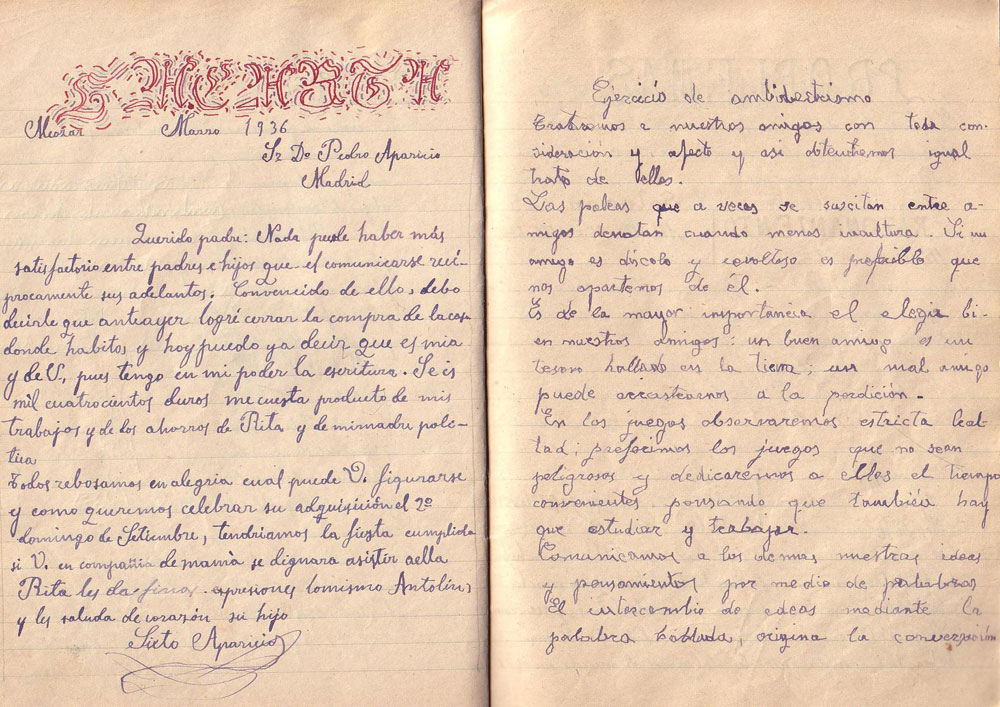 Marzo 1936
Sr Dn Pedro Aparicio
Madrid
Querido padre: Nada puede haber más
satisfactorio entre padres e hijos que el comunicarse reci-
procamente sus adelantos. Convencido de ello, debo
decirle que anteayer logré cerrar la compra de la casa
donde habitos y hoy puedo ya decir que es mia
y de V., pues tengo en mi poder la escritura. Seis
mil cuatrocientos duros me cuesta producto de mis
trabajos y de los ahorros de Rita y de mi madre poli-
tica
Todos rebosamos en alegria cual puede V. figurarse
y como queremos celebrar su adquisición el 2º
domingo de Setiembre, tendriamos la fiesta cumplida
si V. en compañia de mamà se dignara asistir a ella
Rita les da finas espresiones lo mismo Antolin,
y les saluda de corazón su hijo
Sixto Aparicio
Ejercicio de ambidextrismo
Trataremos a nuestros amigos con toda con-
sideración y afecto y asi obtendremos igual
trato de ellos.
Las peleas que a veces se suscitan entre a-
migos denotan cuando menos incultura. Si un
amigo es díscolo y revoltoso es preferible que
nos apartemos de él.
Es de la mayor importancia el elegir bi-
en nuestros amigos: un buen amigo es un
tesoro hallado en la tierra; un mal amigo
puede arrastrarnos a la perdición.
En los juegos observaremos estricta leal-
tad; preferimos los juegos que no sean
peligrosos y dedicaremos a ellos el tiempo
convenientes pensando que también hay
que estudiar y trabajar.
Comunicamos a los demas nuestras ideas
y pensamientos por medio de palabras
El intercambio de edeas mediante la
palabra hablada, origina la conversación